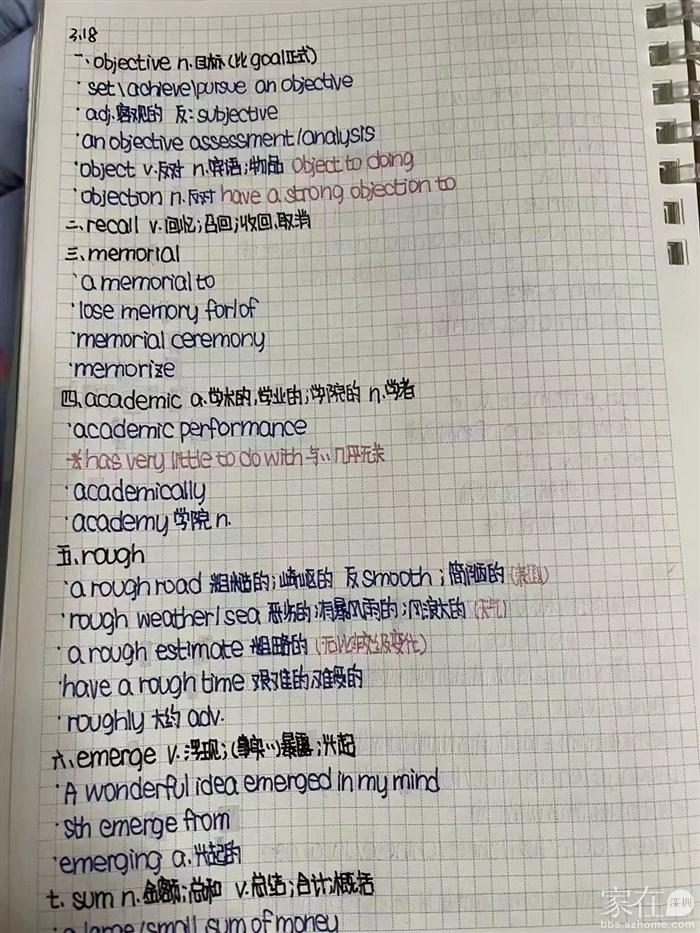 3.18
一、objective n.目标(比goal正式)
·set\achieve\pursue an objective
adj.客观的 反:subjective
·an objective assessment/analysis
·object v.反对 n.宾语;物品 object to doing
·objection n.反对 have a strong objection to
二、recall v.回忆;召回;收回,取消
三、memorial
·a memorial to
·lose memory for/of
·memorial ceremony
·memorize
四、academic a.学术的,学业的;学院的 n.学者
·academic performance
*has very little to do with 与…几乎无关
·academically
·academy 学院 n.
五、rough
·a rough road 粗糙的;崎岖的 反smooth;简陋的
·rough weather/sea 恶劣的;有暴风雨的;风浪大的(天气)
·a rough estimate 粗略的(无比较级变化)
·have a rough time 艰难的,难受的
·roughly 大约 adv.
六、emerge v.浮现;(事实…)暴露;兴起
·A wonderful idea emerged in my mind
·sth emerge from
·emerging a.兴起的
七.sum n.金额;总和 v.总结;合计;概括
·a large/small sum of money
家在深圳
bbs.szhome.com